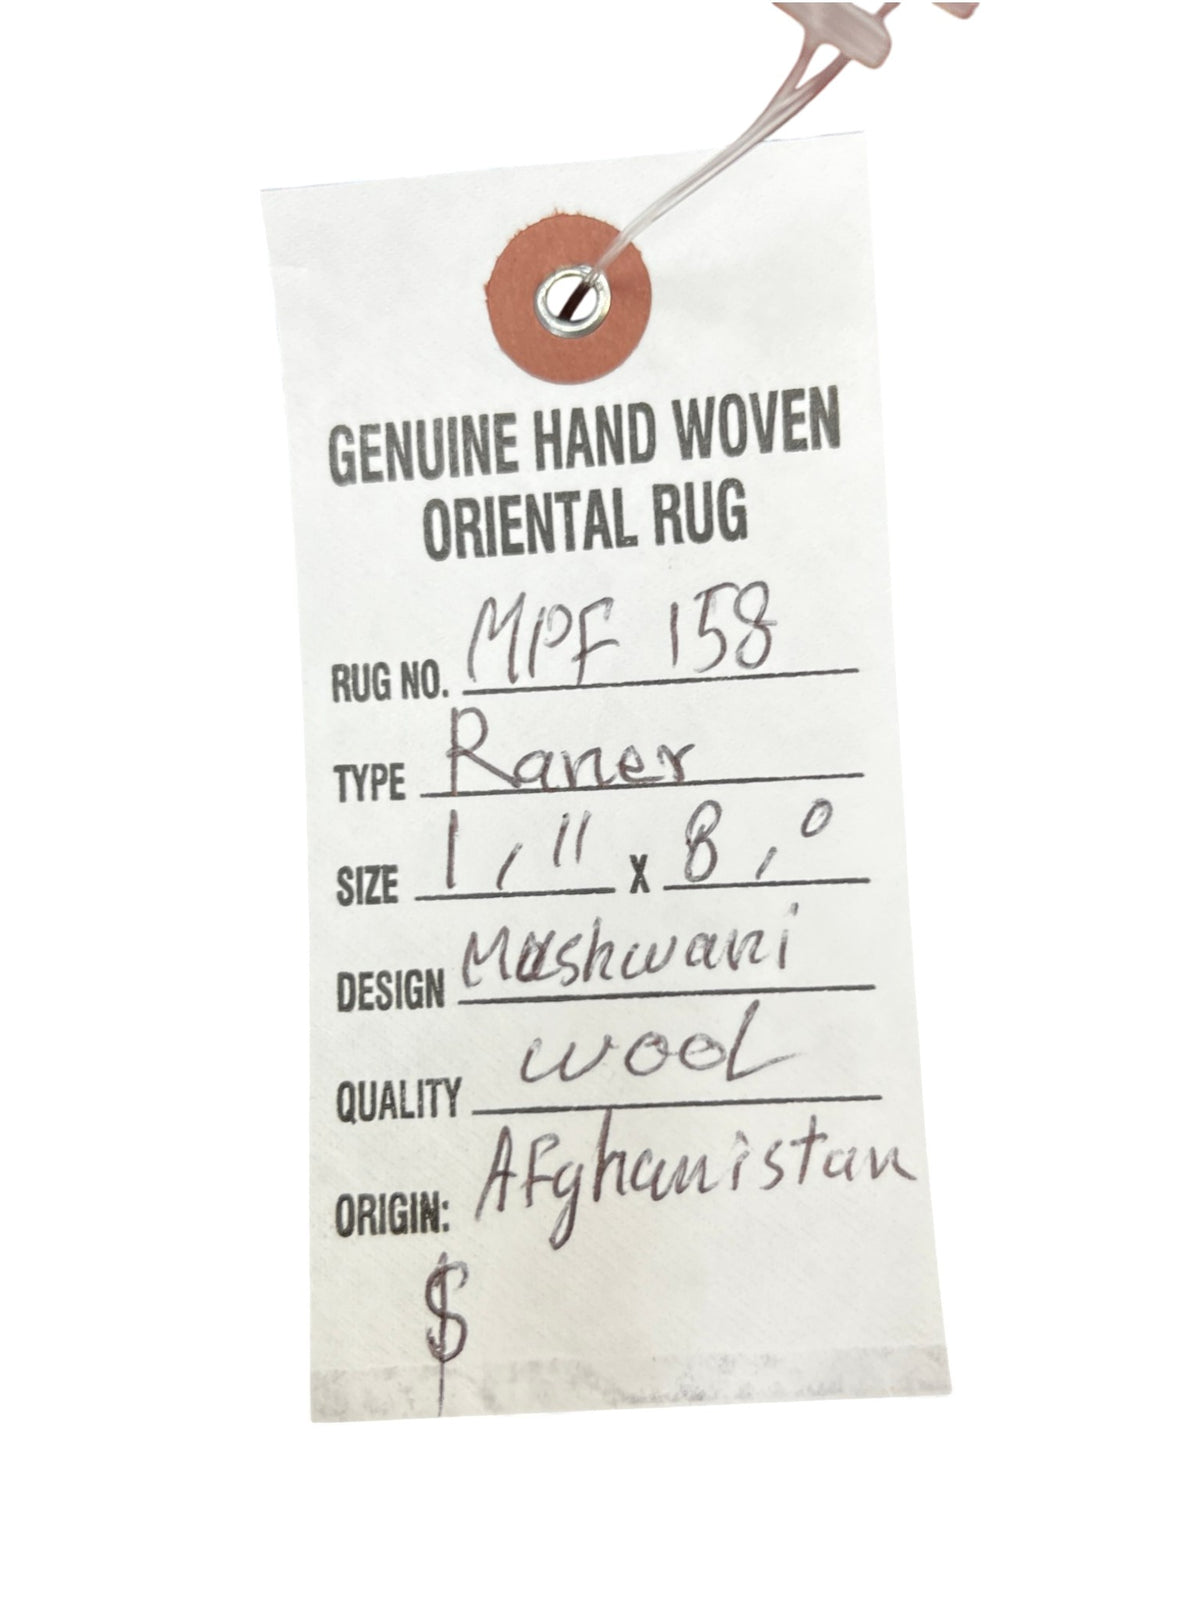 GENUINE HAND WOVEN
ORIENTAL RUG
RUG NO. MPF 158
TYPE Raner
SIZE 1, 11 x 8, 0
DESIGN Mashwani
QUALITY wool
ORIGIN: Afghanistan
$